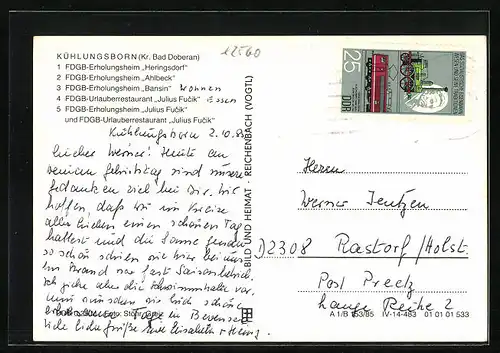 12560
KÜHLUNGSBORN (Kr. Bad Doberan)
1 FDGB-Erholungsheim „Heringsdorf"
2 FDGB-Erholungsheim „Ahlbeck"
3 FDGB-Erholungsheim „Bansin" wohnen
4 FDGB-Urlauberrestaurant „Julius Fučik" Essen
5 FDGB-Erholungsheim „Julius Fučik"
und FDGB-Urlauberrestaurant „Julius Fučik"
Kühlungsborn 2.10.
Lieber Werner! Heute an
Deinem Geburtstag sind unsere
Gedanken viel bei Dir. Wir
hoffen, daß Du im Kreise
aller Lieben einen schönen Tag
hattest und die Sonne genau
so schön schien wie hier bei uns.
Am Strand war fast Saisonbetrieb.
Ich gehe aber die Schwimmhalle vor.
Nun wünschen wir Dich schöne
erholsame Tage in Bevensen
Liebe Grüße Elisabeth + Heinz
BILD UND HEIMAT REICHENBACH (VOGTL)
25
DDR
Herrn
Werner Jentzen
D2308 Rastorf/Holst.
Post Preetz
Lange Reihe 2
A 1/B 153/85 IV-14-483 01 01 01 533